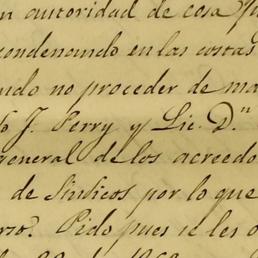 n autoridad de cosa
condenando en las costas
ndo no proceder de ma
J. Ferry y Lic. D.ⁿ
general de los acreedo
de Síndicos por lo que
rzo? Pido pues se les